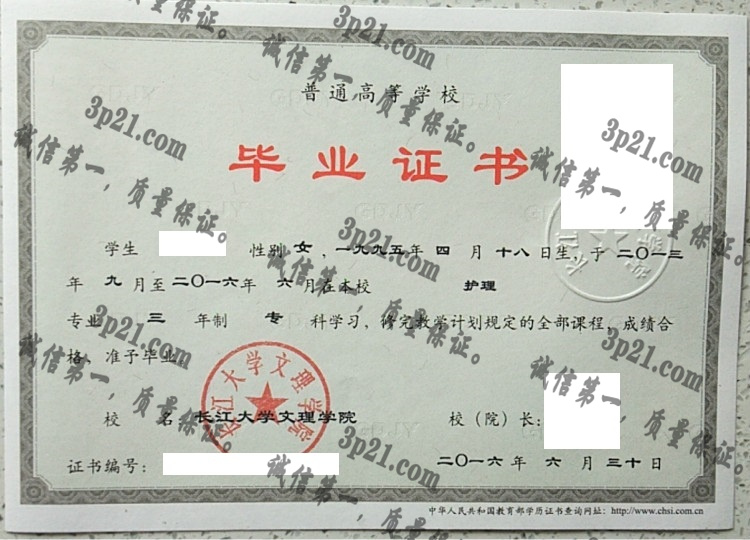 普通高等学校
毕业证书
学生 性别 女，一九九五年 四 月 十八 日生，于 二〇一三
年 九 月至 二〇一六年 六 月在本校 护理
专业 三 年制 专 科学习，修完教学计划规定的全部课程，成绩合
格，准予毕业。
长江大学文理学院
校 名：长江大学文理学院 校（院）长：
证书编号： 二〇一六 年 六 月 三十 日
中华人民共和国教育部学历证书查询网址：http://www.chsi.com.cn
3p21.com
诚信第一，质量保证。
3p21.com
诚信第一，质量保证。
3p21.com
诚信第一，质量保证。
3p21.com
诚信第一，质量保证。
3p21.com
诚信第一，质量保证。
3p21.com
诚信第一，质量保证。
3p21.com
诚信第一，质量保证。